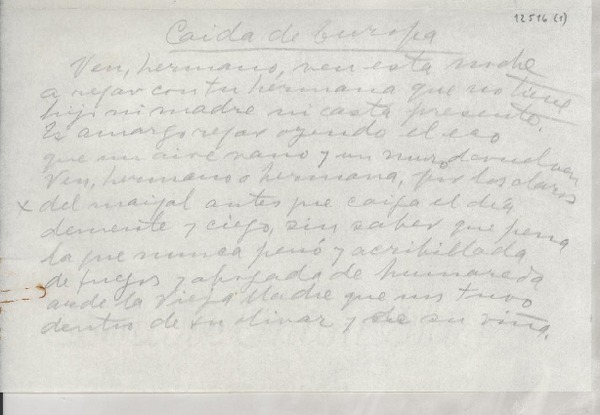 12516 (1)
Caida de Europa
Ven, hermano, ven esta noche
a rezar con tu hermana que no tiene
hijo ni madre ni casta presente.
Es amargo rezar oyendo el eco
que un aire vano y un muro devuelven
Ven, hermano o hermana, por los claros
x del maizal antes que caiga el día
demente y ciego, sin saber que pena
la que nunca penó y acribillada
de fuegos y ahogada de humareda
arde la Vieja Madre que nos tuvo
dentro de su olivar y de su viña.